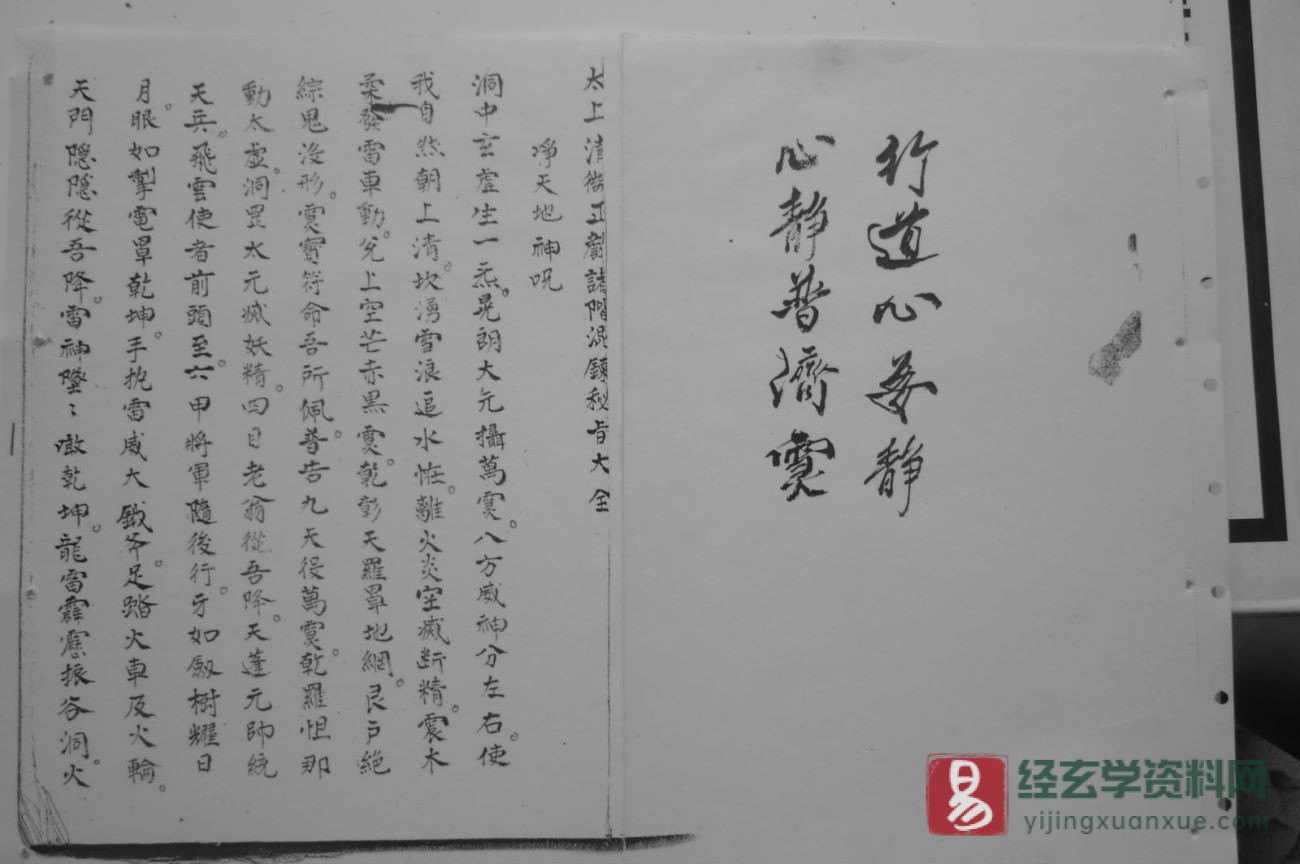 行道心要靜
心静普濟霛
太上清微正劉諸階混鍊秘旨大全
净天地神呪
洞中玄虛生一炁。晃朗大元攝萬霛。八方威神分左右。使
我自然朝上清。坎湧雪浪追水怪。離火炎空滅断精。震木
柔發雷車動。兊上空芒赤黑霛。乾彰天羅罩地網。艮户絶
綜鬼没形。霛寳符命吾所佩。普告九天役萬霛。乾羅怛那
動太虛。洞罡太元滅妖精。四目老翁從吾降。天蓬元帥統
天兵。飛雲使者前頭至。六甲將軍隨後行。牙如劔樹耀日
月。眼如掣電罩乾坤。手抱雷威大鉞斧。足踏火車及火輪。
天門隱隱從吾降。雷神墜〻噉乾坤。龍雷霹靂振谷洞。火
易
经玄学资料网
yijingxuanxue.com